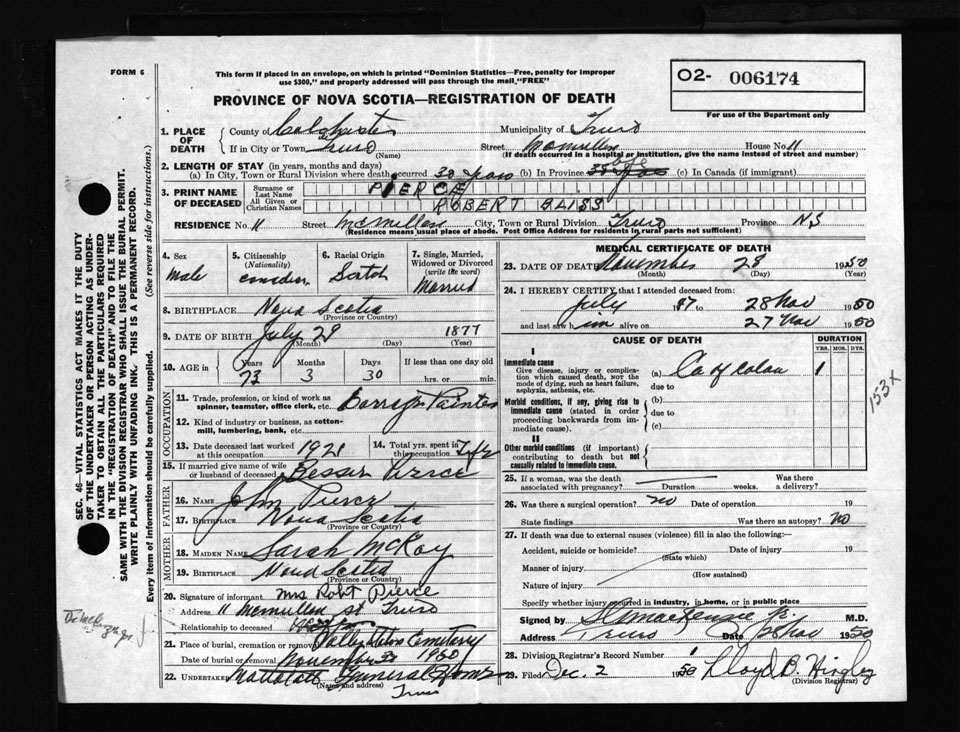 FORM 6
This form if placed in an envelope, on which is printed "Dominion Statistics—Free, penalty for improper
use $300," and properly addressed will pass through the mail, "FREE"
O2- 006174
For use of the Department only
PROVINCE OF NOVA SCOTIA—REGISTRATION OF DEATH
1. PLACE OF DEATH { County of Colchester Municipality of Truro
If in City or Town Truro (Name) Street McMullen House No. 11
(If death occurred in a hospital or institution, give the name instead of street and number)
2. LENGTH OF STAY (in years, months and days)
(a) In City, Town or Rural Division where death occurred 38 years (b) In Province (c) In Canada (if immigrant)
3. PRINT NAME OF DECEASED { Surname or Last Name PIERCE
All Given or Christian Names ROBERT BLISS
RESIDENCE No. 11 Street McMullen City, Town or Rural Division Truro Province N.S
(Residence means usual place of abode. Post Office Address for residents in rural parts not sufficient)
4. Sex male
5. Citizenship (Nationality)
6. Racial Origin Scotch
7. Single, Married, Widowed or Divorced (write the word) Married
8. BIRTHPLACE Nova Scotia
(Province or Country)
9. DATE OF BIRTH July 29 1877
(Month) (Day) (Year)
10. AGE in { Years 73 Months 3 Days 30 If less than one day old hrs. or min.
OCCUPATION
11. Trade, profession, or kind of work as spinner, teamster, office clerk, etc. Painter
12. Kind of industry or business, as cotton-mill, lumbering, bank, etc.
13. Date deceased last worked at this occupation 1921
14. Total yrs. spent in this occupation Life
15. If married give name of wife or husband of deceased Bessie Pierce
FATHER
16. NAME John Pierce
17. BIRTHPLACE Nova Scotia
(Province or Country)
MOTHER
18. MAIDEN NAME Sarah McKay
19. BIRTHPLACE Nova Scotia
(Province or Country)
20. Signature of informant Mrs Robt Pierce
Address 11 McMullen St Truro
Relationship to deceased
21. Place of burial, cremation or removal Cemetery
Date of burial or removal November 1950
22. UNDERTAKER Mattatall Funeral Home
(Name and address) Truro
MEDICAL CERTIFICATE OF DEATH
23. DATE OF DEATH November 28 1950
(Month) (Day) (Year)
24. I HEREBY CERTIFY, that I attended deceased from:
July 1947 to 28 Nov 1950
and last saw him alive on 27 Nov 1950
CAUSE OF DEATH
DURATION
YRS. MOS. DYS.
I
Immediate cause
Give disease, injury or complication which caused death, NOT the mode of dying, such as heart failure, asphyxia, asthenia, etc.
(a) Ca of colon 1
due to
Morbid conditions, if any, giving rise to immediate cause (stated in order proceeding backwards from immediate cause).
(b)
due to
(c)
II
Other morbid conditions (if important) contributing to death but not causally related to immediate cause.
153X
25. If a woman, was the death associated with pregnancy? Duration weeks. Was there a delivery?
26. Was there a surgical operation? no Date of operation 19
State findings Was there an autopsy? no
27. If death was due to external causes (violence) fill in also the following:—
Accident, suicide or homicide? Date of injury 19
(State which)
Manner of injury
(How sustained)
Nature of injury
Specify whether injury occurred in industry, in home, or in public place
Signed by M.D.
Address Truro Date 28 Nov 1950
28. Division Registrar's Record Number 1
29. Filed Dec. 2 1950 Lloyd B. Hingley
(Division Registrar)
SEC. 46—VITAL STATISTICS ACT MAKES IT THE DUTY
OF THE UNDERTAKER OR PERSON ACTING AS UNDER-
TAKER TO OBTAIN ALL THE PARTICULARS REQUIRED
IN THE "REGISTRATION OF DEATH" AND TO FILE THE
SAME WITH THE DIVISION REGISTRAR WHO SHALL ISSUE THE BURIAL PERMIT.
WRITE PLAINLY WITH UNFADING INK. THIS IS A PERMANENT RECORD.
Every item of information should be carefully supplied. (See reverse side for instructions.)